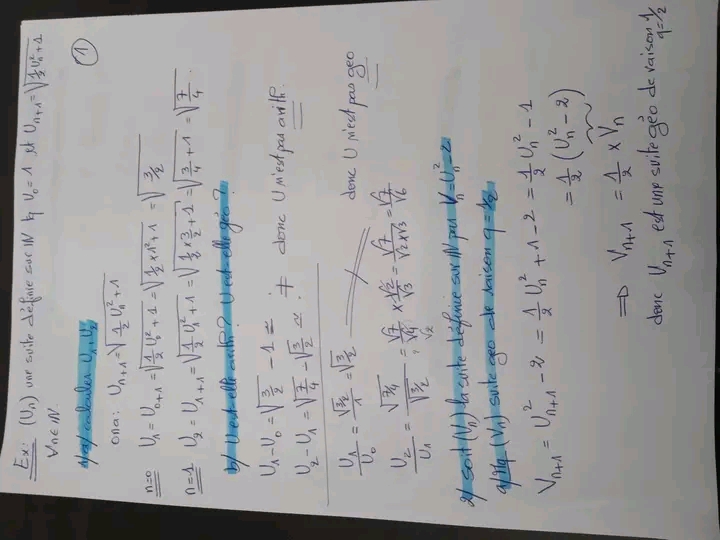 Ex: (Un) une suite définie sur IN tq U0 = 1 et Un+1 = √(1/2 Un² + 1
∀n∈IN.
1
1/a/ calculer U1, U2
ona: Un+1 = √(1/2 Un² + 1
n=0 U1 = U0+1 = √(1/2 U0² + 1 = √(1/2 x 1² + 1 = √(3/2
n=1 U2 = U1+1 = √(1/2 U1² + 1 = √(1/2 x 3/2 + 1 = √(3/4 + 1 = √(7/4.
b/ U est elle arith? U est elle géo?
U1 - U0 = √(3/2 - 1 ≃
U2 - U1 = √(7/4 - √(3/2 ≃ . ≠ donc U n'est pas arith.
U1/U0 = √(3/2)/1 = √(3/2
U2/U1 = √(7/4)/√(3/2) = √7/√4 x √2/√3 = √7/(√2 x √3) = √7/√6 donc U n'est pas géo
2/ soit (Vn) la suite définie sur IN par Vn = Un² - 2
a/ Mq (Vn) suite géo de raison q = 1/2
Vn+1 = Un+1² - 2 = 1/2 Un² + 1 - 2 = 1/2 Un² - 1
= 1/2 (Un² - 2)
⇒ Vn+1 = 1/2 x Vn
donc Vn+1 est une suite géo de raison q = 1/2